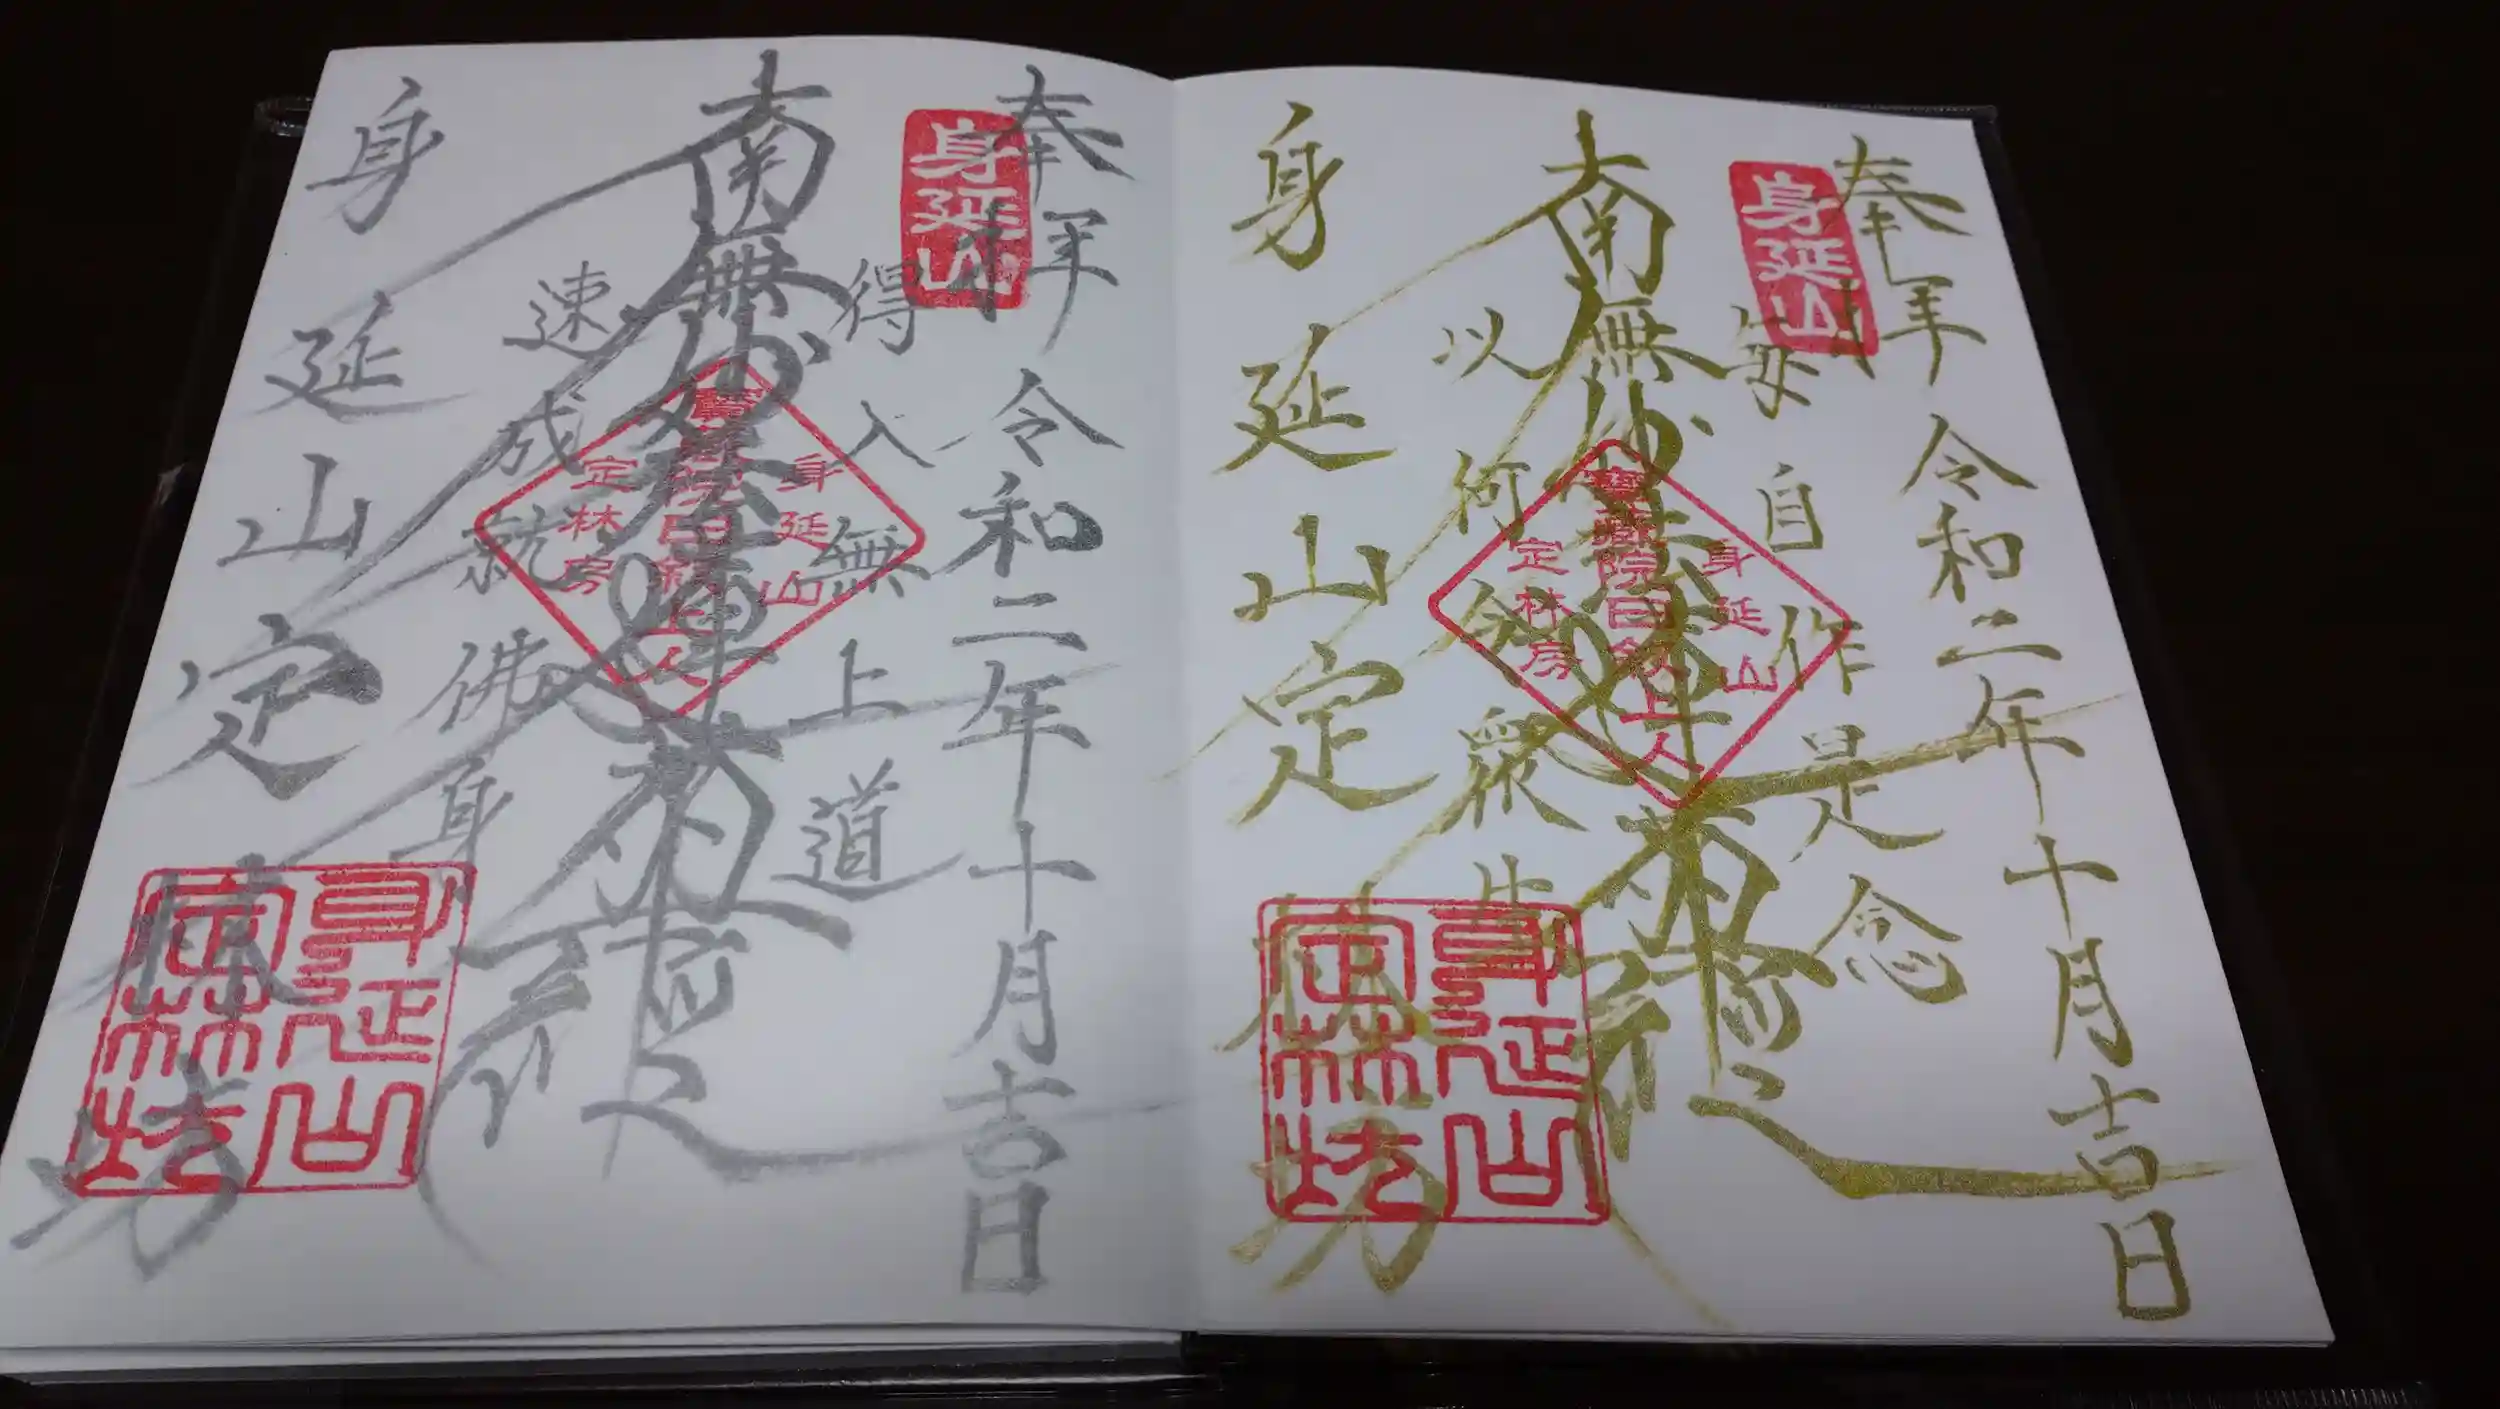 奉拝 令和二年十月吉日
身延山
毎自作是念
南無妙法蓮華経
以何令衆生
身延山
寶蔵院日叙上人
定林房
身延山定林坊
身延山
定林坊
奉拝 令和二年十月吉日
身延山
得入無上道
南無妙法蓮華経
速成就佛身
身延山
寶蔵院日叙上人
定林房
身延山定林坊
身延山
定林坊